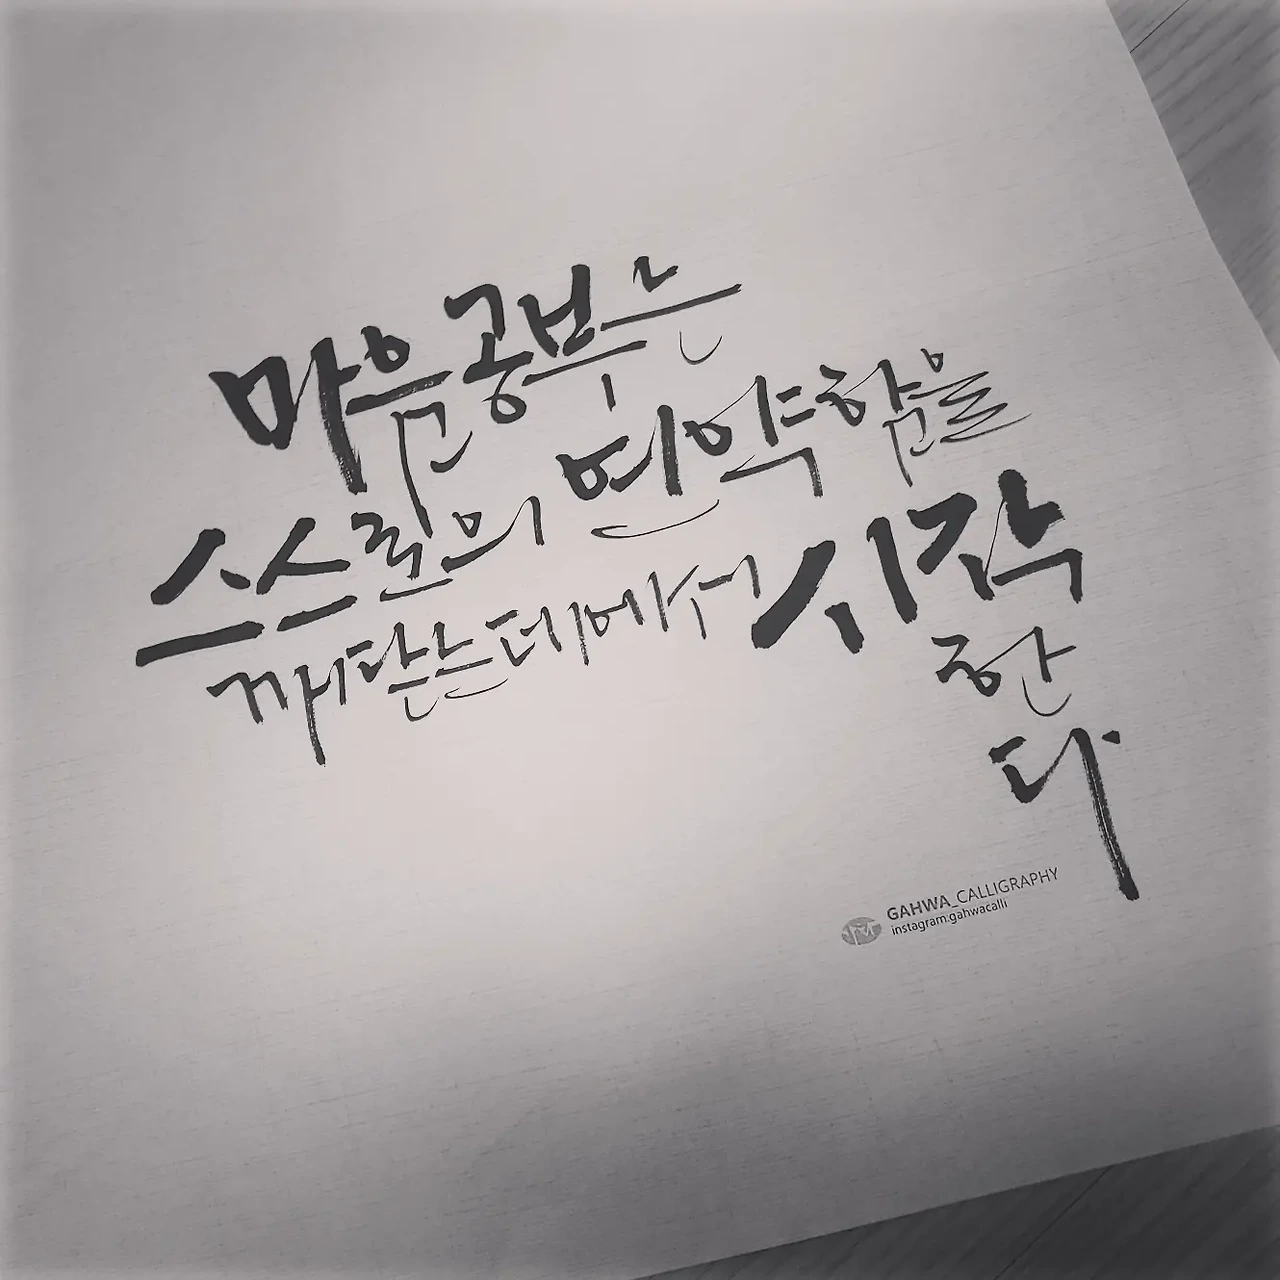 마음공부는
스스로의 연약함을
깨닫는데에서 시작
한
다.
GAHWA_CALLIGRAPHY
instagram.gahwacalli